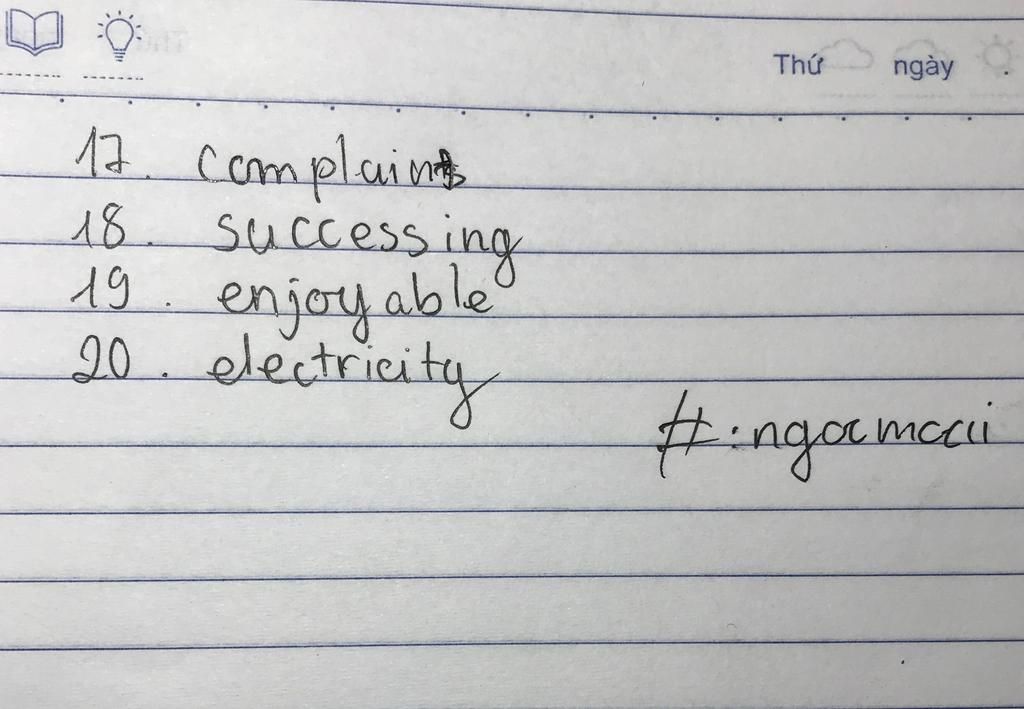 Thứ ngày
17. complaints
18. successing
19. enjoyable
20. electricity
#:ngocmcaii